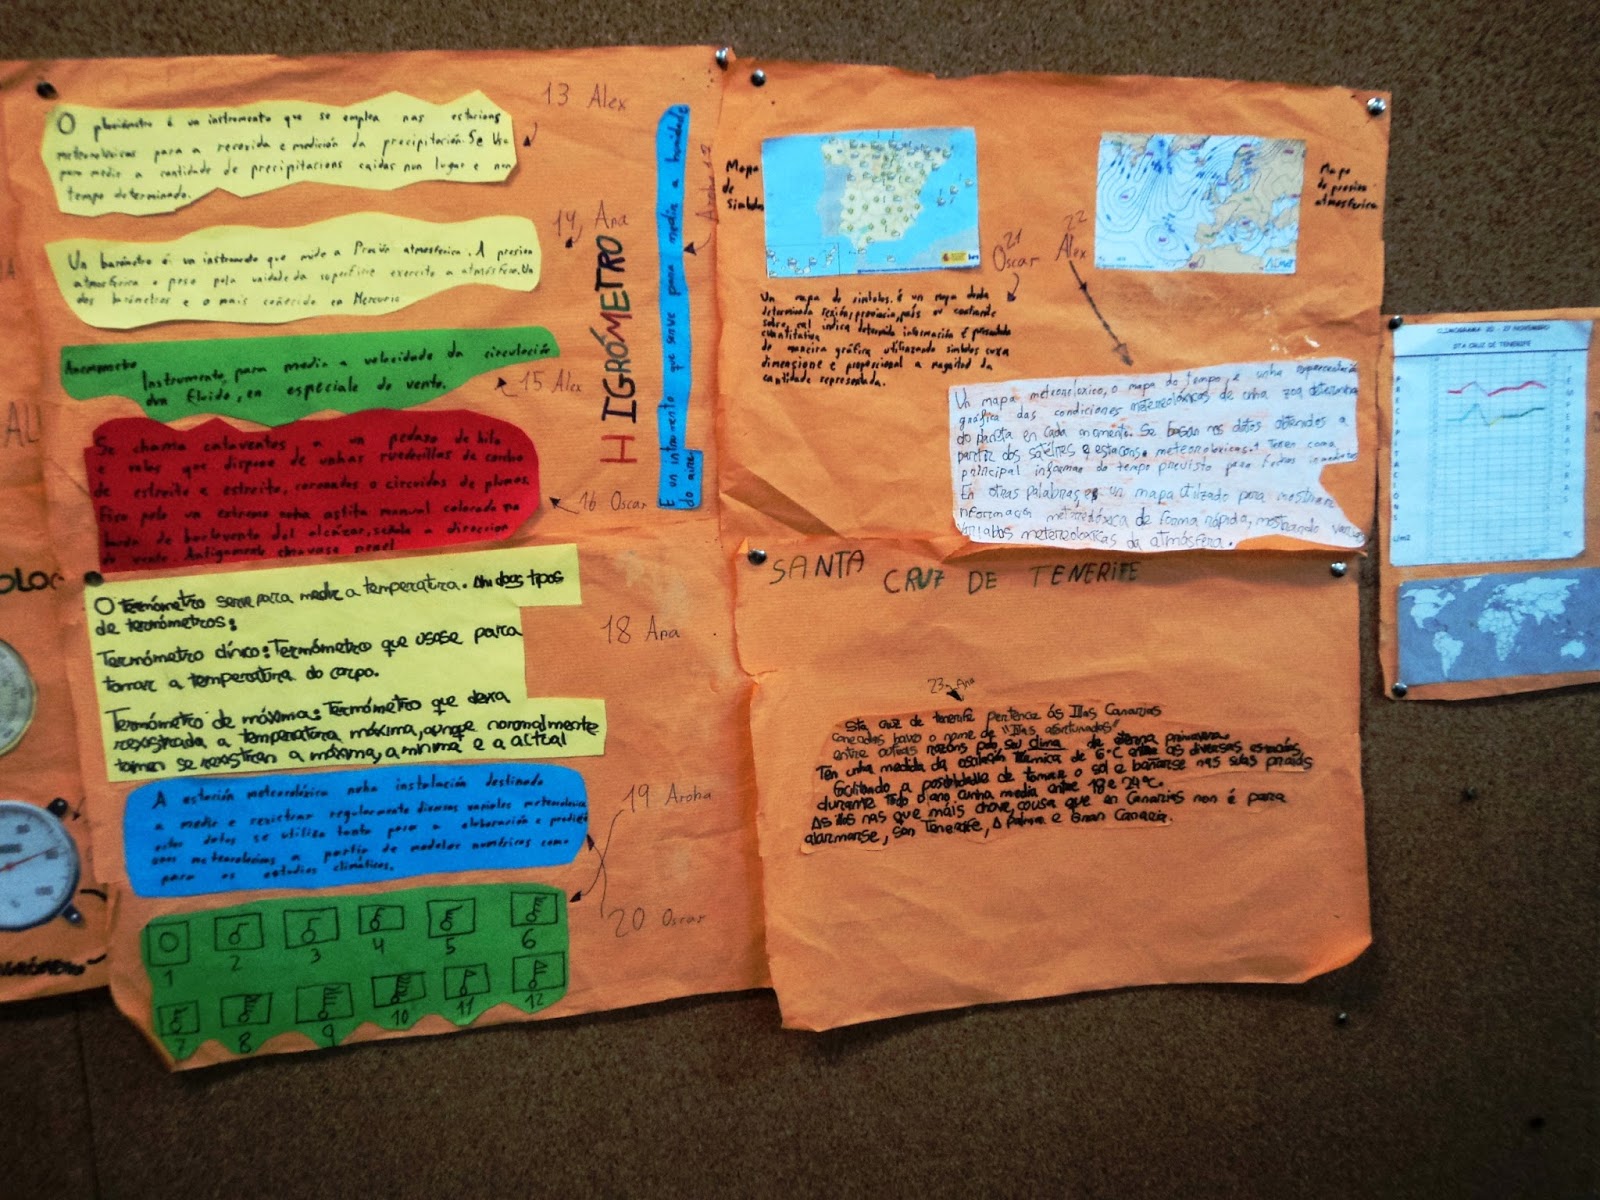 13 Alex
O pluviómetro é un instrumento que se emplea nas estacions
meteorolóxicas para a recollida e medición da precipitación. Se usa
para medir a cantidade de precipitacions caidas nun lugar e nun
tempo determinado.
14 Ana
Un barómetro é un instrumento que mide a Presión atmosferica. A presion
atmosferica o peso pola unidade da superficie exercito a atmósfera. Un
dos barómetros e o mais coñecido en Mercurio
Anemometro
Instrumento para medir a velocidade da circulación
dun fluido, en especiale do vento.
15 Alex
Se chama cataventos a un pedazo de hilo
e velos que dispone de unhas ruedecillas de corcho
de estreito a estreito, coronados o circuidas de plumas.
Fixo polo un extremo nunha astita manual colocada na
banda de barlovento del alcázar, señala a direccion
do vento. Antigamente chamavase penel
16 Oscar
HIGRÓMETRO
E un intrumento que serve para medir a humidade
do aire
Aroha 17
O termómetro serve para medir a temperatura. Ahi dos tipos
de termómetros:
Termómetro clínico: Termómetro que usase para
tomar a temperatura do corpo.
Termómetro de máxima: Termómetro que deixa
rexistrada a temperatura máxima, aunque noronalmente
tamen se rexistran a máxima, a mínima e a actual
18 Ana
A estación meteorolóxica nunha instalación destinada
a medir e rexistrar regularmente diversas variables meteorolóxicas
estes datos se utiliza tanto para a elaboración e predición
a partir de modelos numéricos como
para os estudios climáticos.
19 Aroha
20 Oscar
1 2 3 4 5 6
7 8 9 10 11 12
Mapa
de
simbolos
21
Oscar
Un mapa de simbolos é un mapa dunha
determinada rexión, provincia, país ou continente
sobre cal indica determida información é presentado
cuantitativa
de maneira gráfica utilizando simbolos cuxa
dimensione e proporcional a magnitud da
cantidade representada.
22
Alex
Mapa
de presion
atmosferica
Un mapa meteoroloxico, o mapa do tempo, é unha representación
gráfica das condiciones meteorolóxicas de unha zoa determina
do planeta en cada momento. Se basan nos datos obtenidos a
partir dos satélites e estacions meteorolóxicas. Teñen como
principal informar do tempo previsto para fechas inmediatas
En otras palabras, es un mapa utilizado para mostrar
informacion metereolóxica de forma rápida, mostrando varias
variables metereolóxicas da atmósfera.
SANTA CRUZ DE TENERIFE
23 Ana
Sta cruz de tenerife pertence ós Illas Canarias
coñecidas baixo o nome de "Illas afortunadas"
entre outras razóns polo seu clima de eterna primavera
Ten unha medida da oscilación Térmica de 6°C entre as diversas estacións,
facilitando a posibilidade de tomar o sol e bañarse nas súas praias
durante todo o ano cunha media entre 18 e 24°C.
As illas nas que máis chove, cousa que en Canarias non é para
alarmarse, son Tenerife, A palma e Gran Canaria.
CLIMOGRAMA 20 - 27 NOVEMBRO
STA CRUZ DE TENERIFE
PRECIPITACIONS
TEMPERATURAS